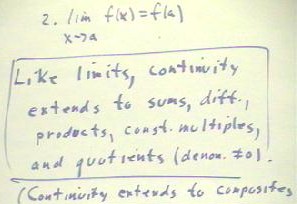 2. lim f(x)=f(a)
x→a
Like limits, continuity
extends to sums, diff.,
products, const. multiples,
and quotients (denom. ≠0).
(Continuity extends to composites